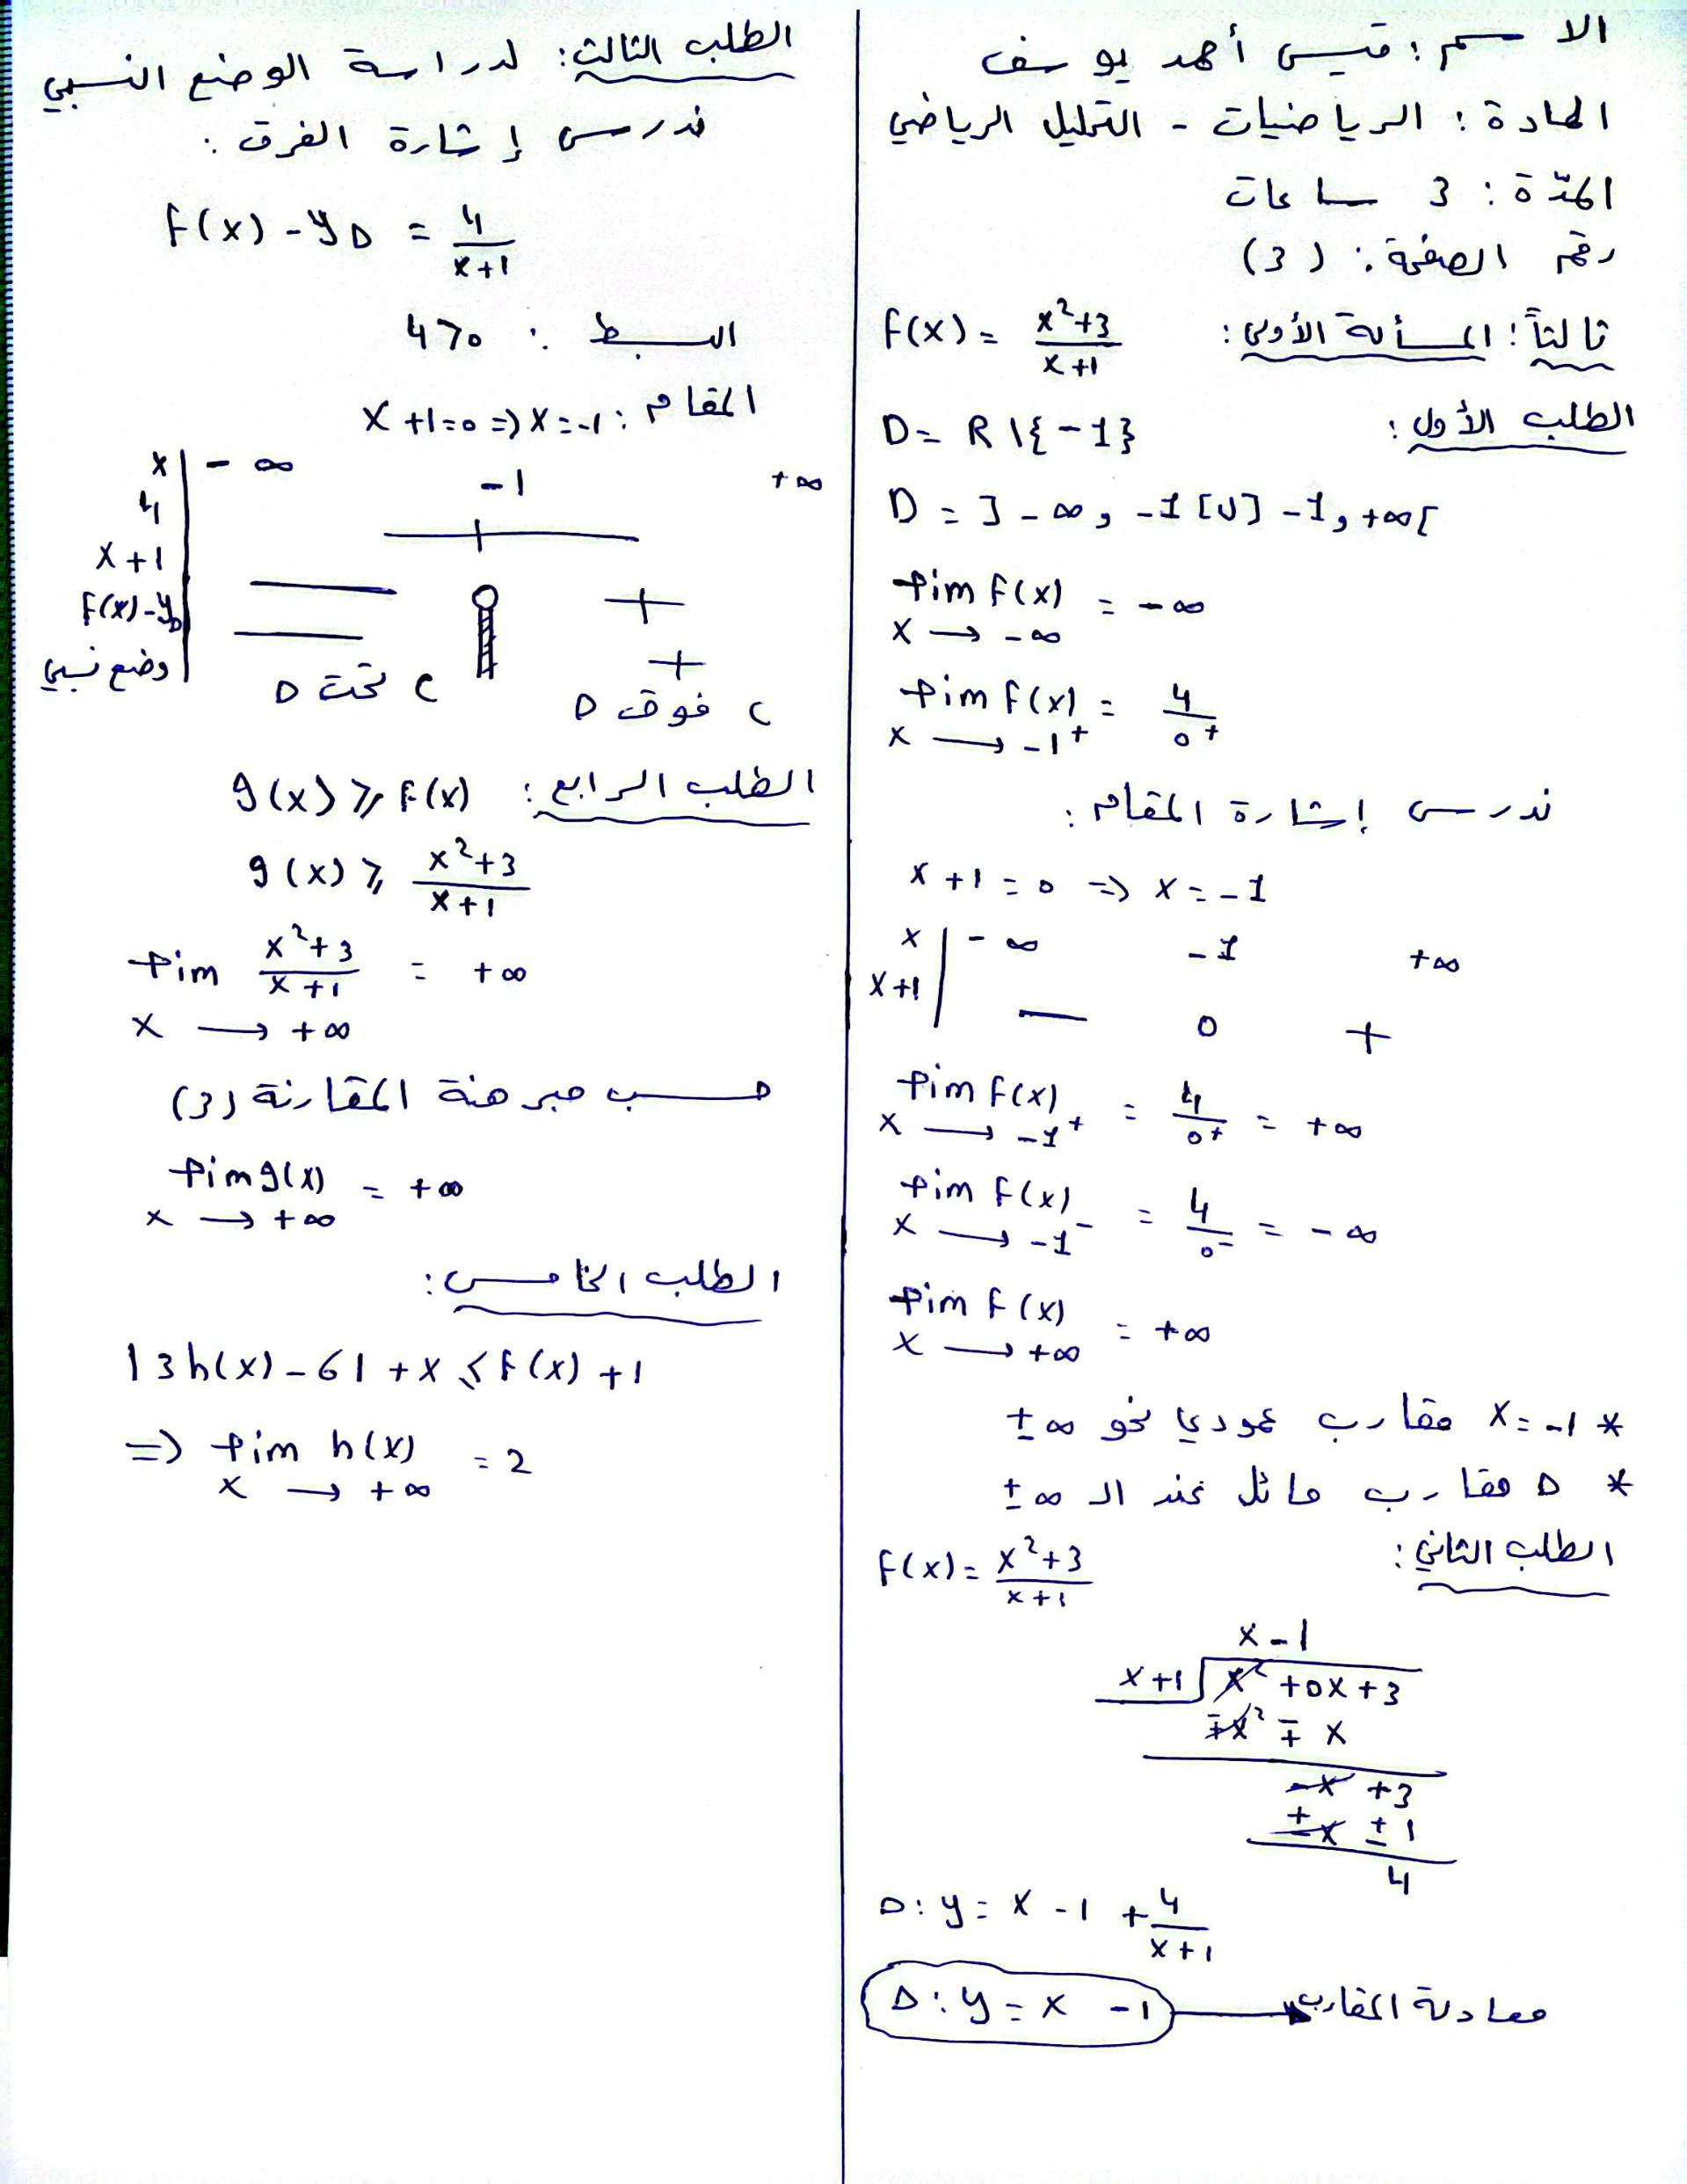 الاسم : قيس أحمد يوسف
المادة : الرياضيات - التحليل الرياضي
المدّة : 3 ساعات
رقم الصفحة : (3)
ثالثاً : المسألة الأولى : f(x) = \frac{x²+3}{x+1}
الطلب الأول : D = R \ {-1}
D = ]-∞, -1[ ∪ ]-1, +∞[
lim f(x) = -∞
x → -∞
lim f(x) = \frac{4}{0⁺}
x → -1⁺
ندرس إشارة المقام :
x+1=0 => x=-1
x | -∞ -1 +∞
x+1 | − 0 +
lim f(x) = \frac{4}{0⁺} = +∞
x → -1⁺
lim f(x) = \frac{4}{0⁻} = -∞
x → -1⁻
lim f(x) = +∞
x → +∞
* x=-1 مقارب عمودي نحو ±∞
* D مقارب مائل عند ال ±∞
الطلب الثاني : f(x) = \frac{x²+3}{x+1}
x-1
x+1 | x² +0x+3
∓x² ∓ x
-x +3
±x ± 1
4
D: y = x -1 + \frac{4}{x+1}
D: y = x -1 → معادلة المقارب
الطلب الثالث : لدراسة الوضع النسبي
ندرس إشارة الفرق :
f(x) - y_D = \frac{4}{x+1}
البسط : 4>0
المقام : x+1=0 => x=-1
x | -∞ -1 +∞
4 | +
x+1 | − 0 +
f(x)-y_D | − +
وضع نسبي | C تحت D C فوق D
الطلب الرابع : g(x) ≥ f(x)
g(x) ≥ \frac{x²+3}{x+1}
lim \frac{x²+3}{x+1} = +∞
x → +∞
حسب مبرهنة المقارنة (3)
lim g(x) = +∞
x → +∞
الطلب الخامس :
|3h(x) - 6| + x ≤ f(x) + 1
=> lim h(x) = 2
x → +∞